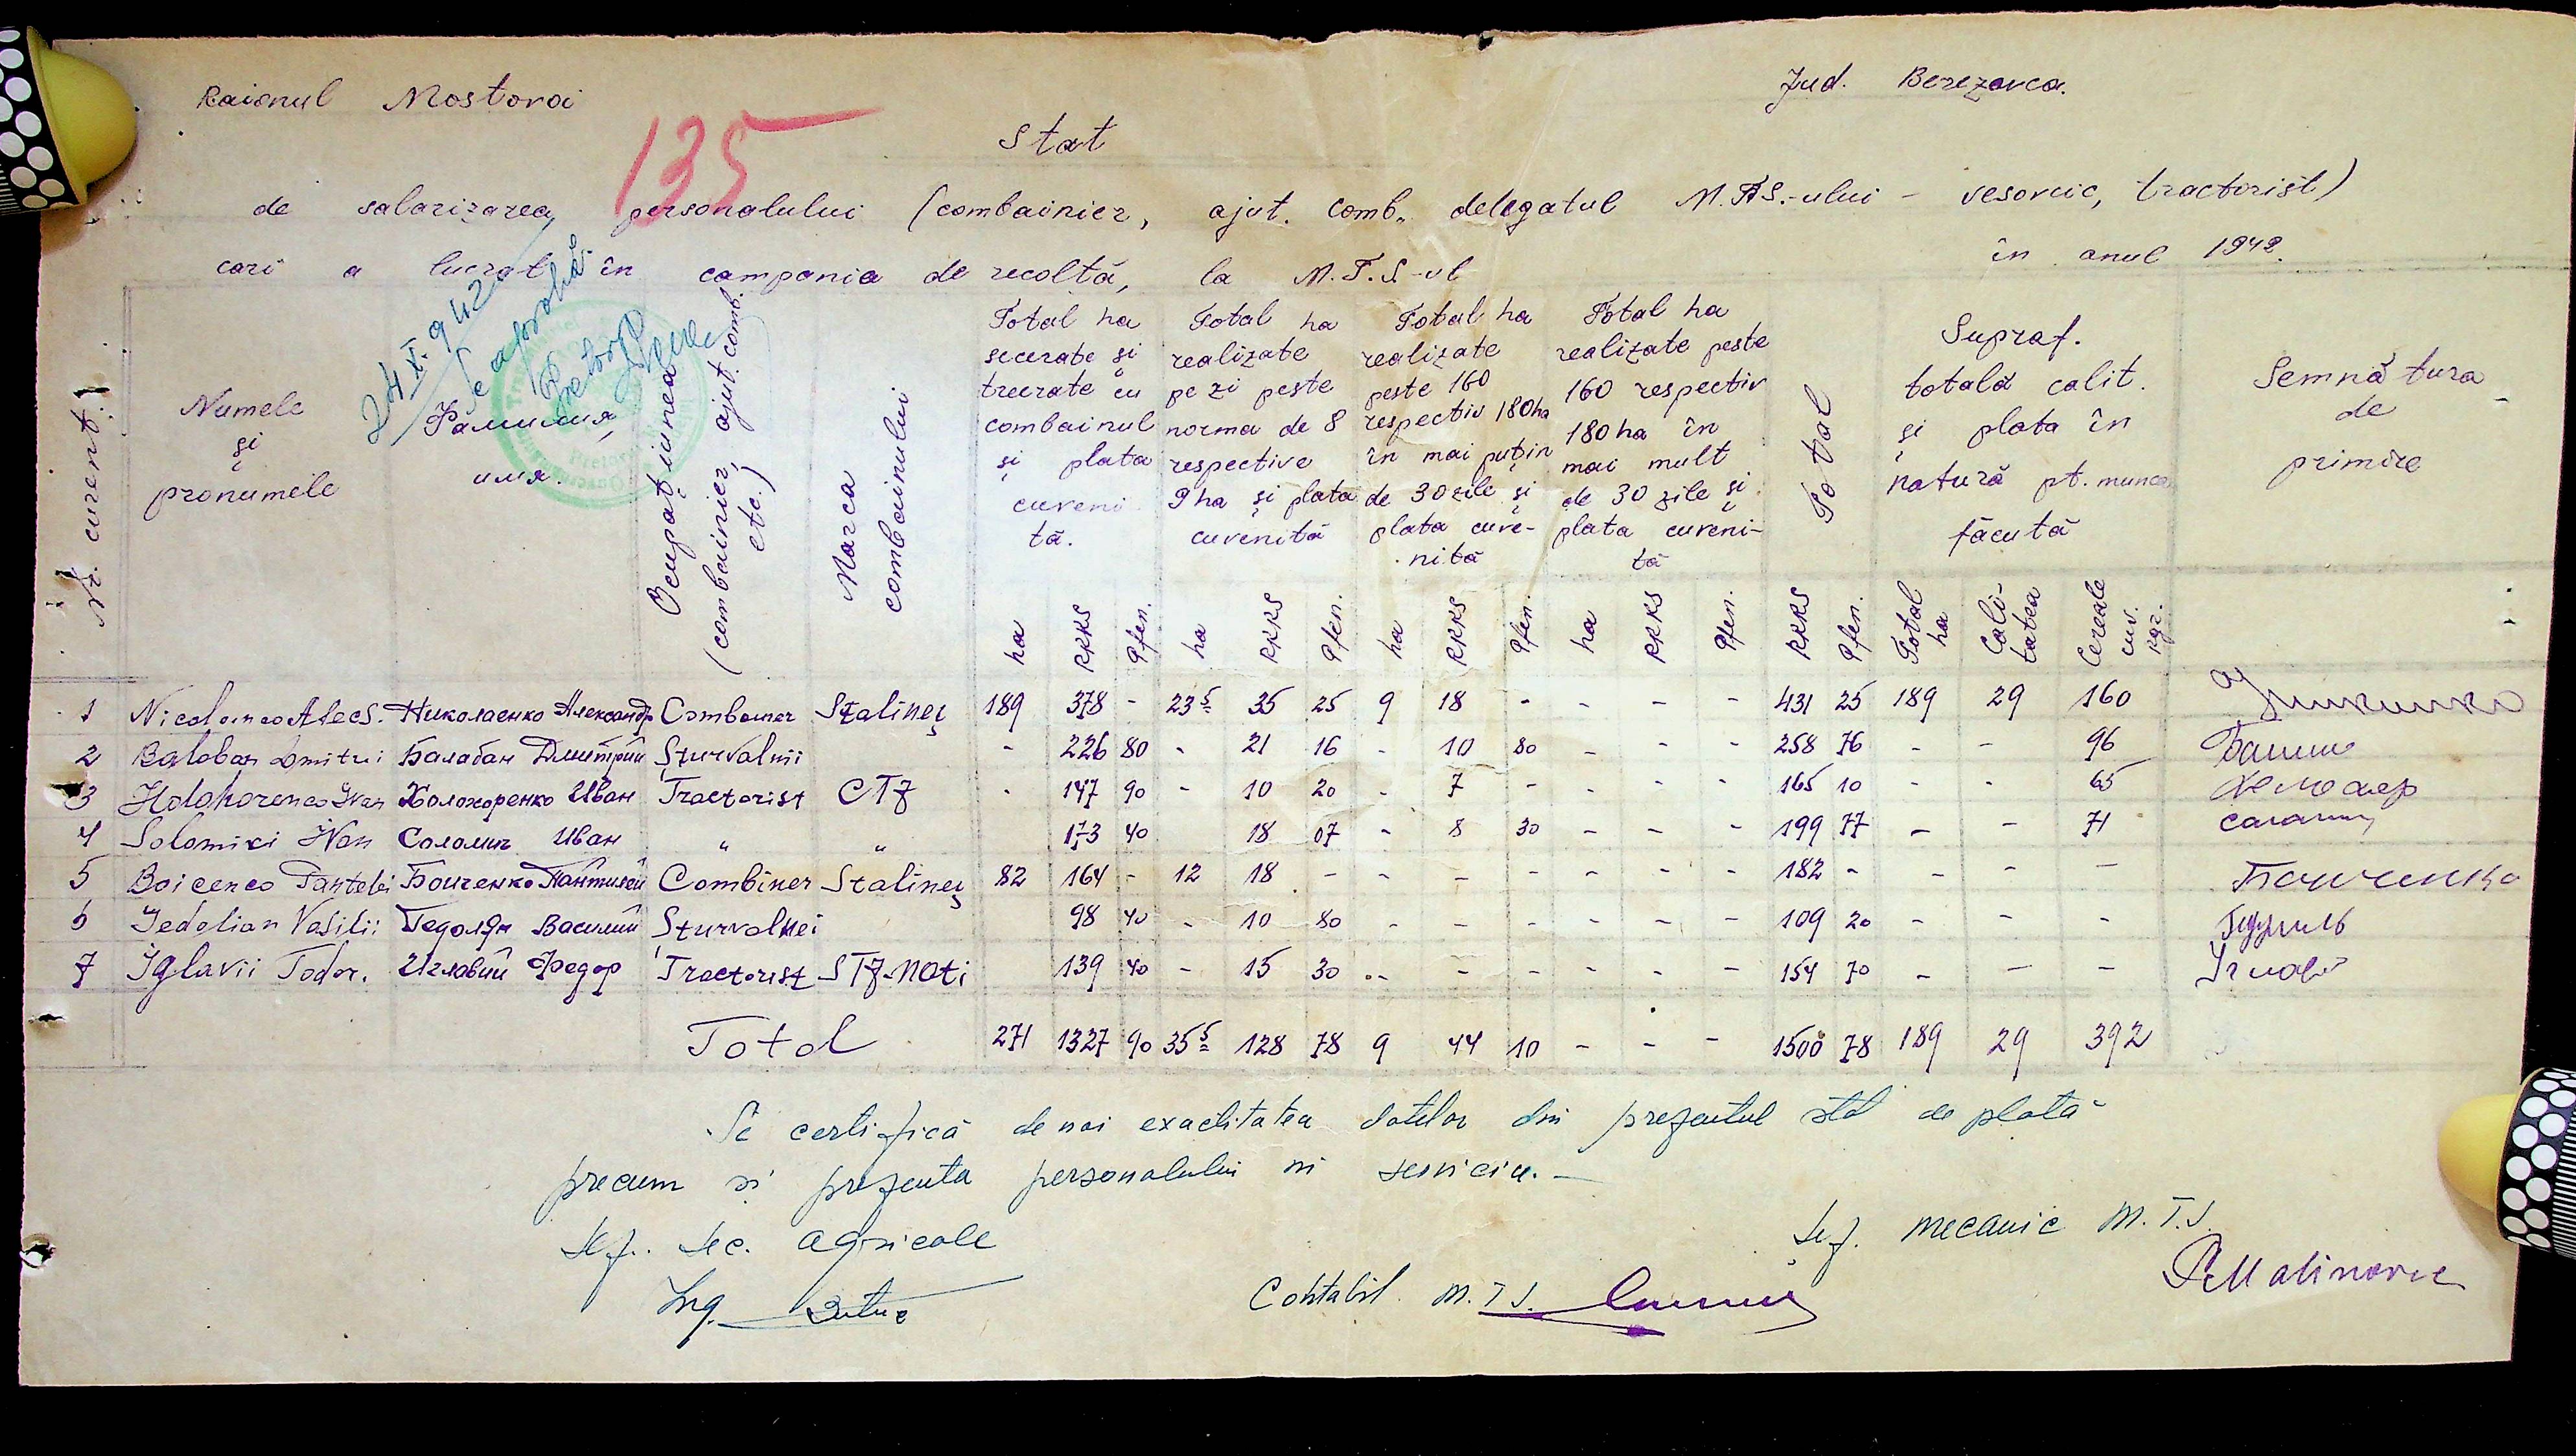 Raionul Mostovoi
Jud. Berezovca.
135
Stat
de salarizarea personalului (combainier, ajut. comb. delegatul M.T.S.-ului - vesovcic, tractorist)
cari a lucrat în campania de recoltă, la M.T.S-ul în anul 1942.
24.X.942
Se aprobă
Pretor
Nr. curent.
Numele și pronumele
Фамилия, имя.
Ocupațiunea (combainier, ajut. comb. etc.)
Marca combainului
Total ha secerate și treerate cu combainul și plata cuveni tă.
Total ha realizate pe zi peste norma de 8 respective 9 ha și plata cuvenită
Total ha realizate peste 160 respectiv 180 ha în mai puțin de 30 zile și plata cuve-nită
Total ha realizate peste 160 respectiv 180 ha în mai mult de 30 zile și plata cuveni-tă
Total
Supraf. totală calit. și plata în natură pt. munca făcută
Semnătura de primire
ha RKKS Pfen. ha RKKS Pfen. ha RKKS Pfen. ha RKKS Pfen. RKKS Pfen. Total ha Cali-tatea Cereale cuv. kgr.
1 Nicolaenco Alecs. Николаенко Александр Combainer Stalineț 189 378 - 23 5 35 25 9 18 - - - - 431 25 189 29 160
2 Balaban Dmitrii Балабан Дмитрий Șturvalnii - 226 80 - 21 16 - 10 80 - - - 258 76 - - 96
3 Holohorenco Ivan Холохоренко Иван Tractorist СТZ - 147 90 - 10 20 - 7 - - - - 165 10 - - 65
4 Solomici Ivan Соломич Иван " " 173 40 18 07 - 8 30 - - - 199 77 - - 71
5 Boicenco Pantelei Бойченко Пантилей Combiner Stalineț 82 164 - 12 18 - - - - - - - 182 - - - - Бойченко
6 Gedolian Vasilii Гедолян Василий Șturvalnei 98 40 - 10 80 - - - - - - 109 20 - - -
7 Iglavii Todor. Иглавий Федор Tractorist STZ-Nati 139 40 - 15 30 - - - - - - 154 70 - - -
Total 271 1327 90 35 5 128 78 9 44 10 - - - 1500 78 189 29 392
Se certifică de noi exactitatea datelor din prezentul stat de plată
precum și prezența personalului în serviciu. -
Șef. Sec. agricole
Șef. mecanic M.T.S.
Ing.
Contabil M.T.S.
P. Malinovic